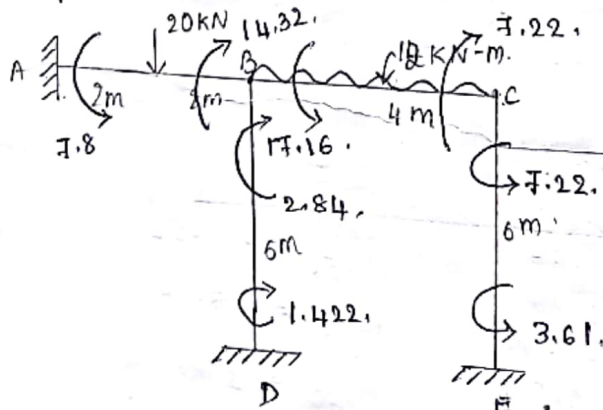 20kN 14.32. 7.22.
A B KN-m. C
2m 2m 4m
7.8 17.16. 7.22.
2.84.
6m 6m
1.422. 3.61.
D